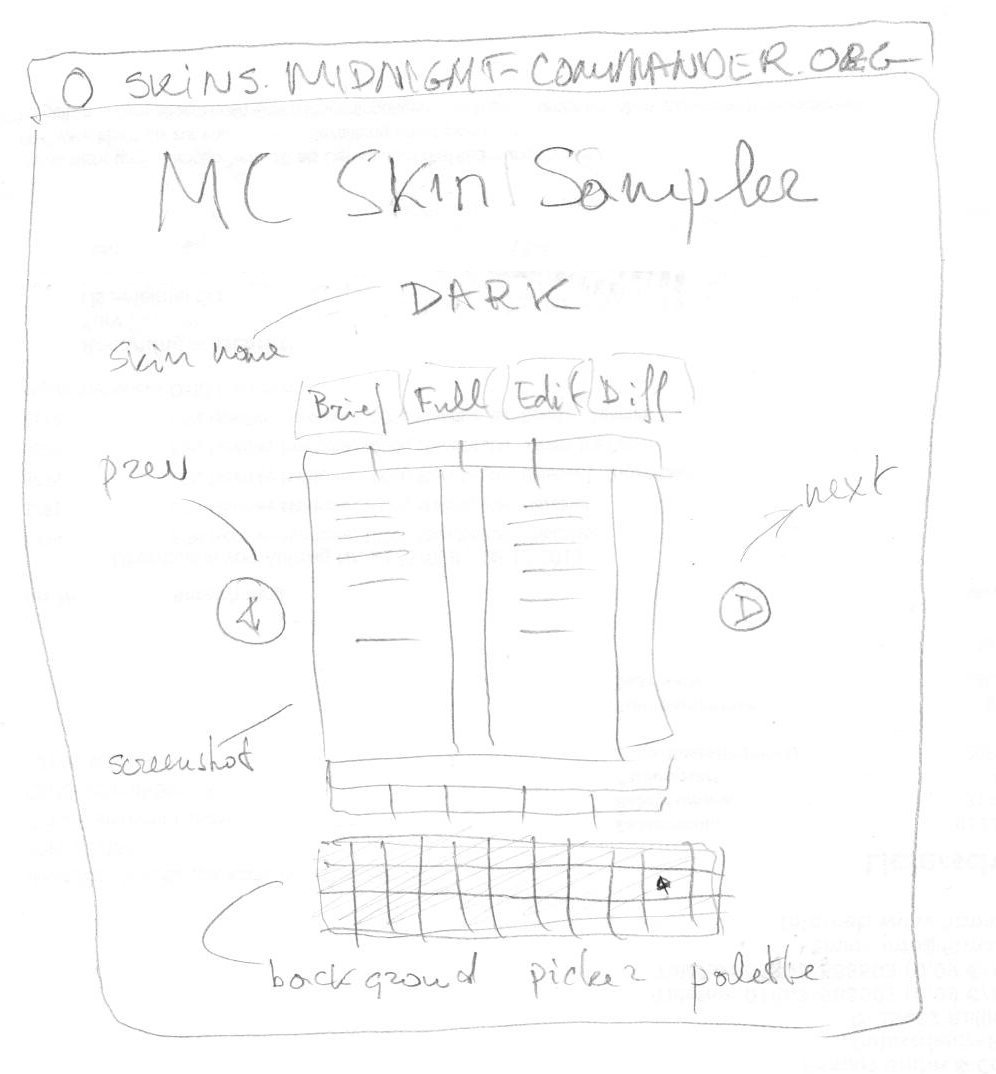 SKINS.MIDNIGHT-COMMANDER.ORG
MC Skin Sampler
DARK
skin name
Brief Full Edit Diff
prev
next
screenshot
background picker palette